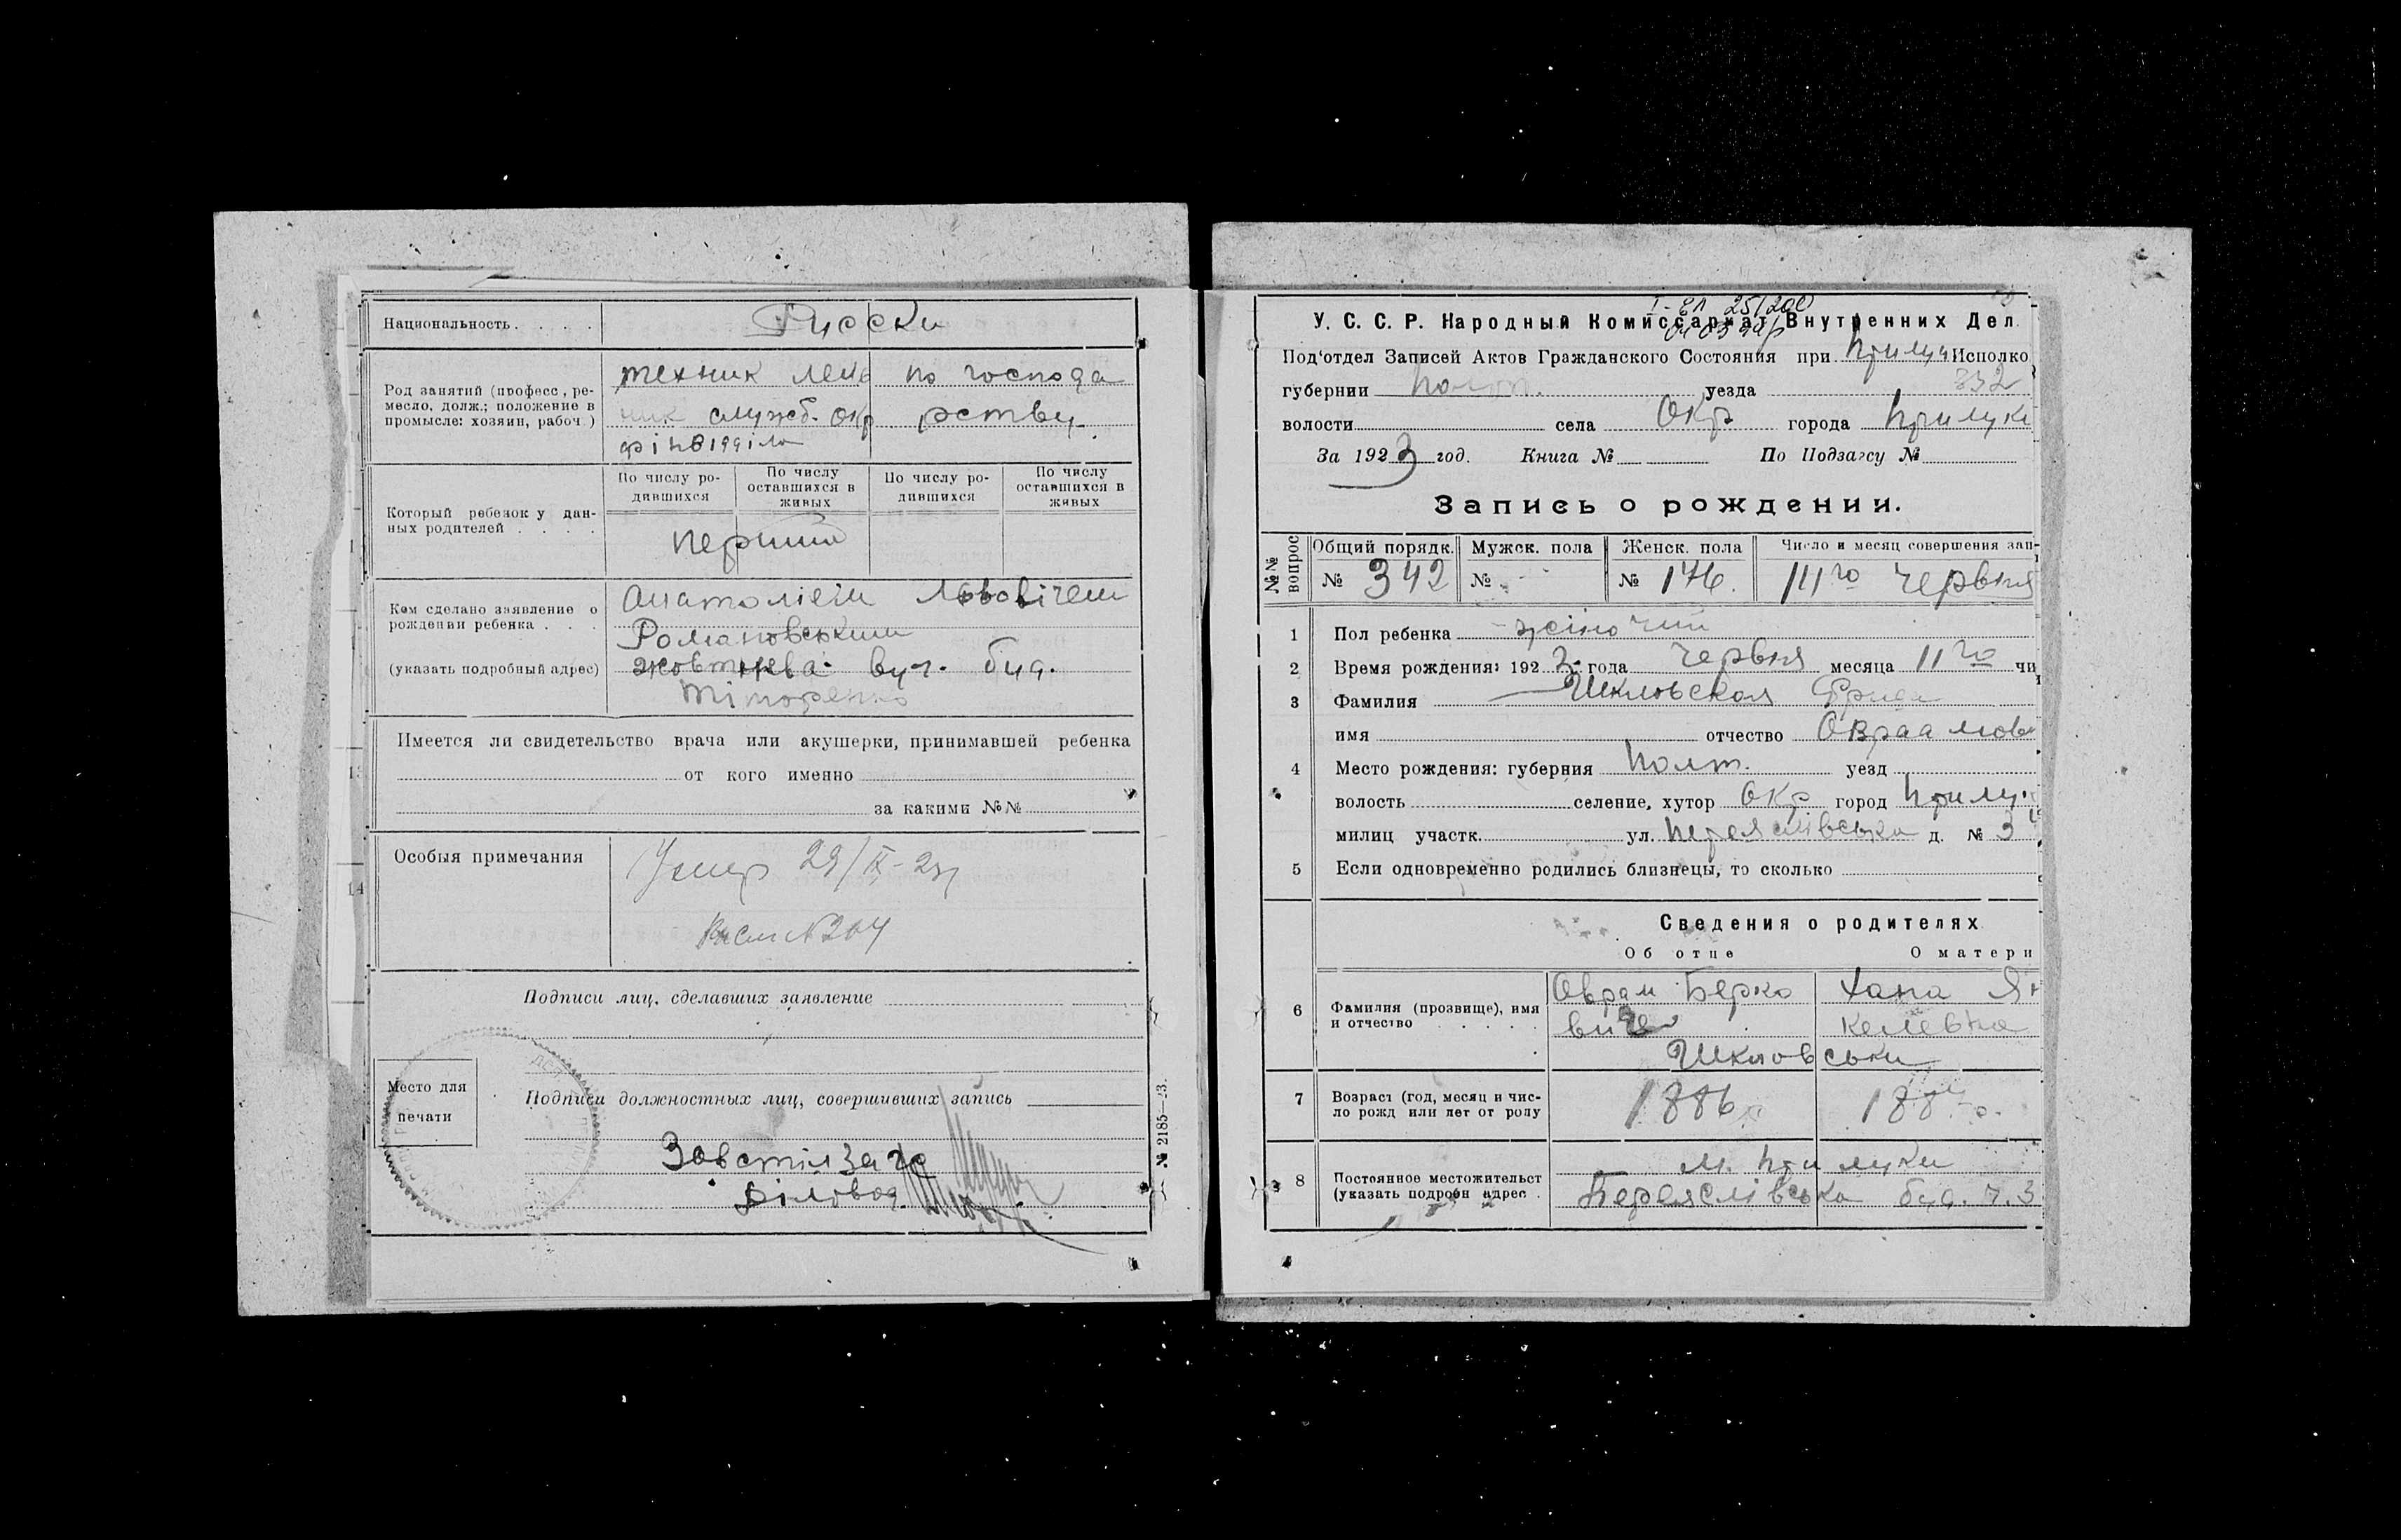 Национальность. . . . .
Русски
Род занятий (професс, ремесло, долж.; положение в промысле: хозяин, рабоч.)
техник
по господа
служб. Окр
рству
По числу родившихся
По числу оставшихся в живых
По числу родившихся
По числу оставшихся в живых
Который ребенок у данных родителей . . . .
перший
Кем сделано заявление о рождении ребенка . . .
Анатолієм Львовічем
Романовським
(указать подробный адрес)
жовтнева вул. буд.
Тіторенко
Имеется ли свидетельство врача или акушерки, принимавшей ребенка
от кого именно
за какими №№
Особыя примечания
Умер 29/IX-23
№ 204
Подписи лиц, сделавших заявление
Место для печати
Подписи должностных лиц, совершивших запись
Завстілзагс
Діловод
№ 2185—23.
У. С. С. Р. Народный Комиссариат Внутренних Дел
Под'отдел Записей Актов Гражданского Состояния при Прилуц Исполко
губернии Полт. уезда
832
волости села Окр города Прилуки
За 1923 год. Книга № По Подзагсу №
Запись о рождении.
№№ вопрос
Общий порядк.
Мужск. пола
Женск. пола
Число и месяц совершения зап-
№ 342
№ -
№ 176.
Червня
1 Пол ребенка жіночий
2 Время рождения: 1923 года Червня месяца 11го чи
3 Фамилия Шкловская
имя отчество Овраамов
4 Место рождения: губерния Полт. уезд
волость селение, хутор Окр город Прилу
милиц участк. ул. Переяслівська д. № 3
5 Если одновременно родились близнецы, то сколько
Сведения о родителях
Об отце
О матери
6 Фамилия (прозвище), имя и отчество . . . . .
Оврам Берко
Хана Ян
вич
келевна
Шкловськи
7 Возраст (год, месяц и число рожд или лет от роду
1886
8 Постоянное местожительст (указать подробн адрес .
м. Прилуки
Переяслівська буд. ч. 3